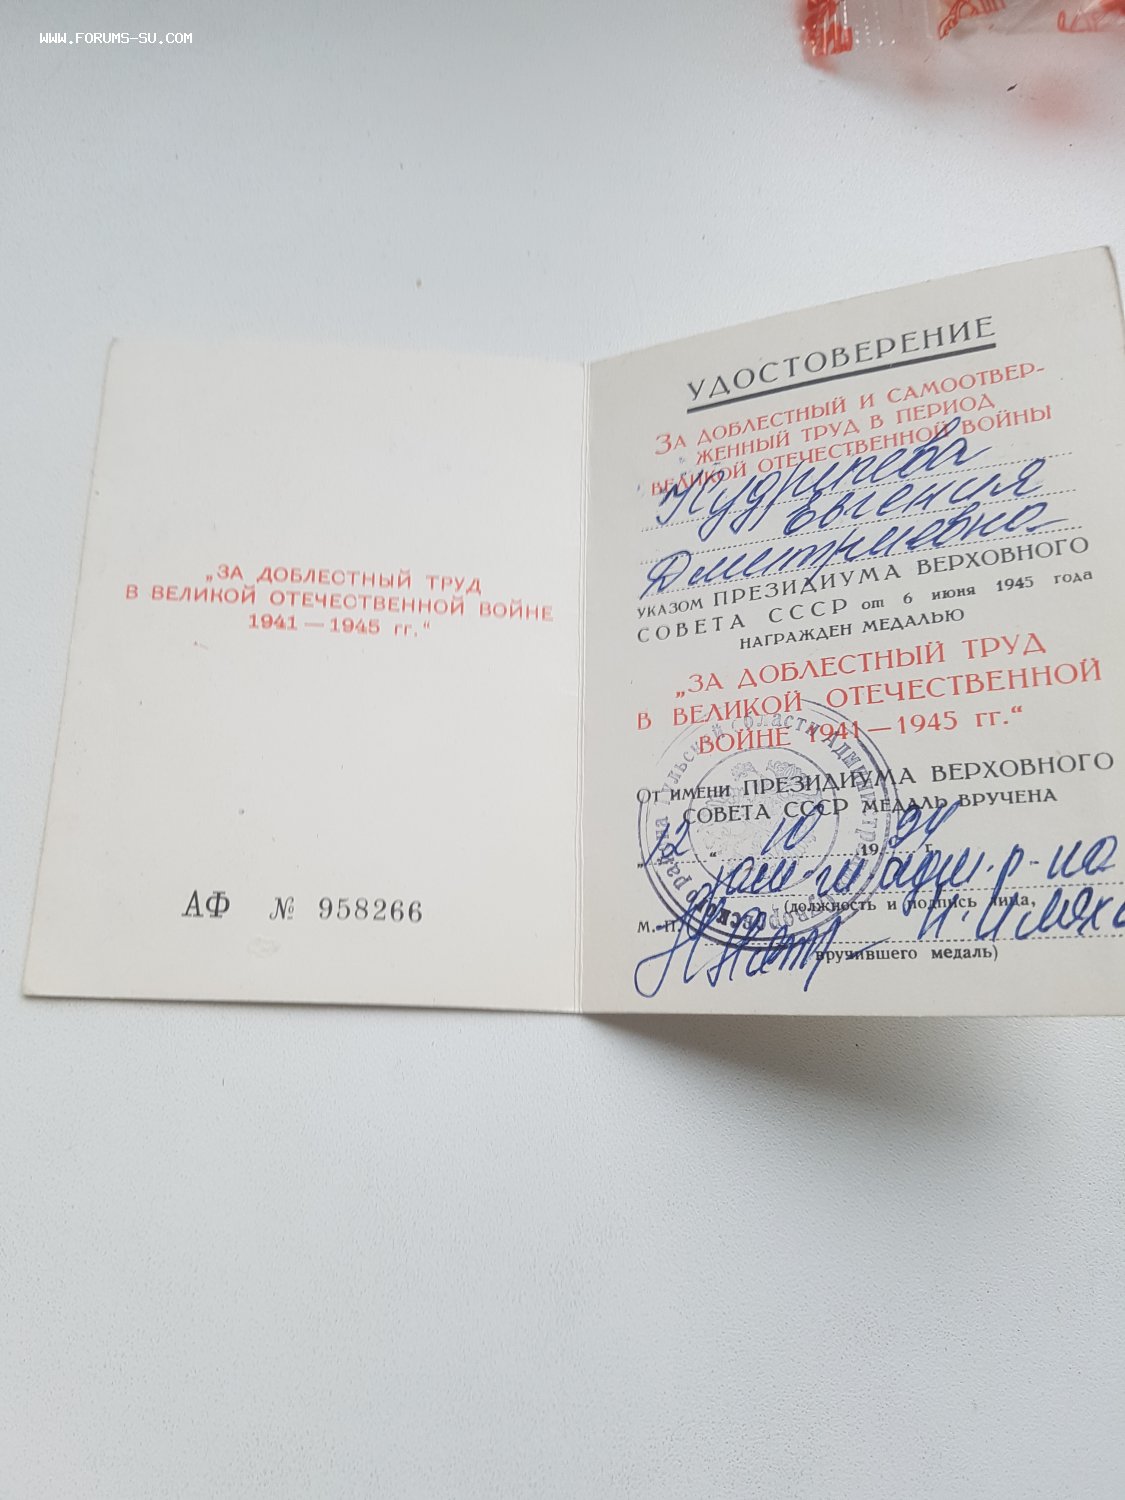 WWW.FORUMS-SU.COM
„ЗА ДОБЛЕСТНЫЙ ТРУД
В ВЕЛИКОЙ ОТЕЧЕСТВЕННОЙ ВОЙНЕ
1941—1945 гг.“
АФ № 958266
УДОСТОВЕРЕНИЕ
ЗА ДОБЛЕСТНЫЙ И САМООТВЕР-
ЖЕННЫЙ ТРУД В ПЕРИОД
ВЕЛИКОЙ ОТЕЧЕСТВЕННОЙ ВОЙНЫ
Евгения
Дмитриевна
УКАЗОМ ПРЕЗИДИУМА ВЕРХОВНОГО
СОВЕТА СССР от 6 июня 1945 года
НАГРАЖДЕН МЕДАЛЬЮ
„ЗА ДОБЛЕСТНЫЙ ТРУД
В ВЕЛИКОЙ ОТЕЧЕСТВЕННОЙ
ВОЙНЕ 1941—1945 гг.“
ОТ ИМЕНИ ПРЕЗИДИУМА ВЕРХОВНОГО
СОВЕТА СССР МЕДАЛЬ ВРУЧЕНА
„12“ 10 1994 г.
адм. р-на
(должность и подпись лица,
М. П.
вручившего медаль)
района Тульской области Администрация